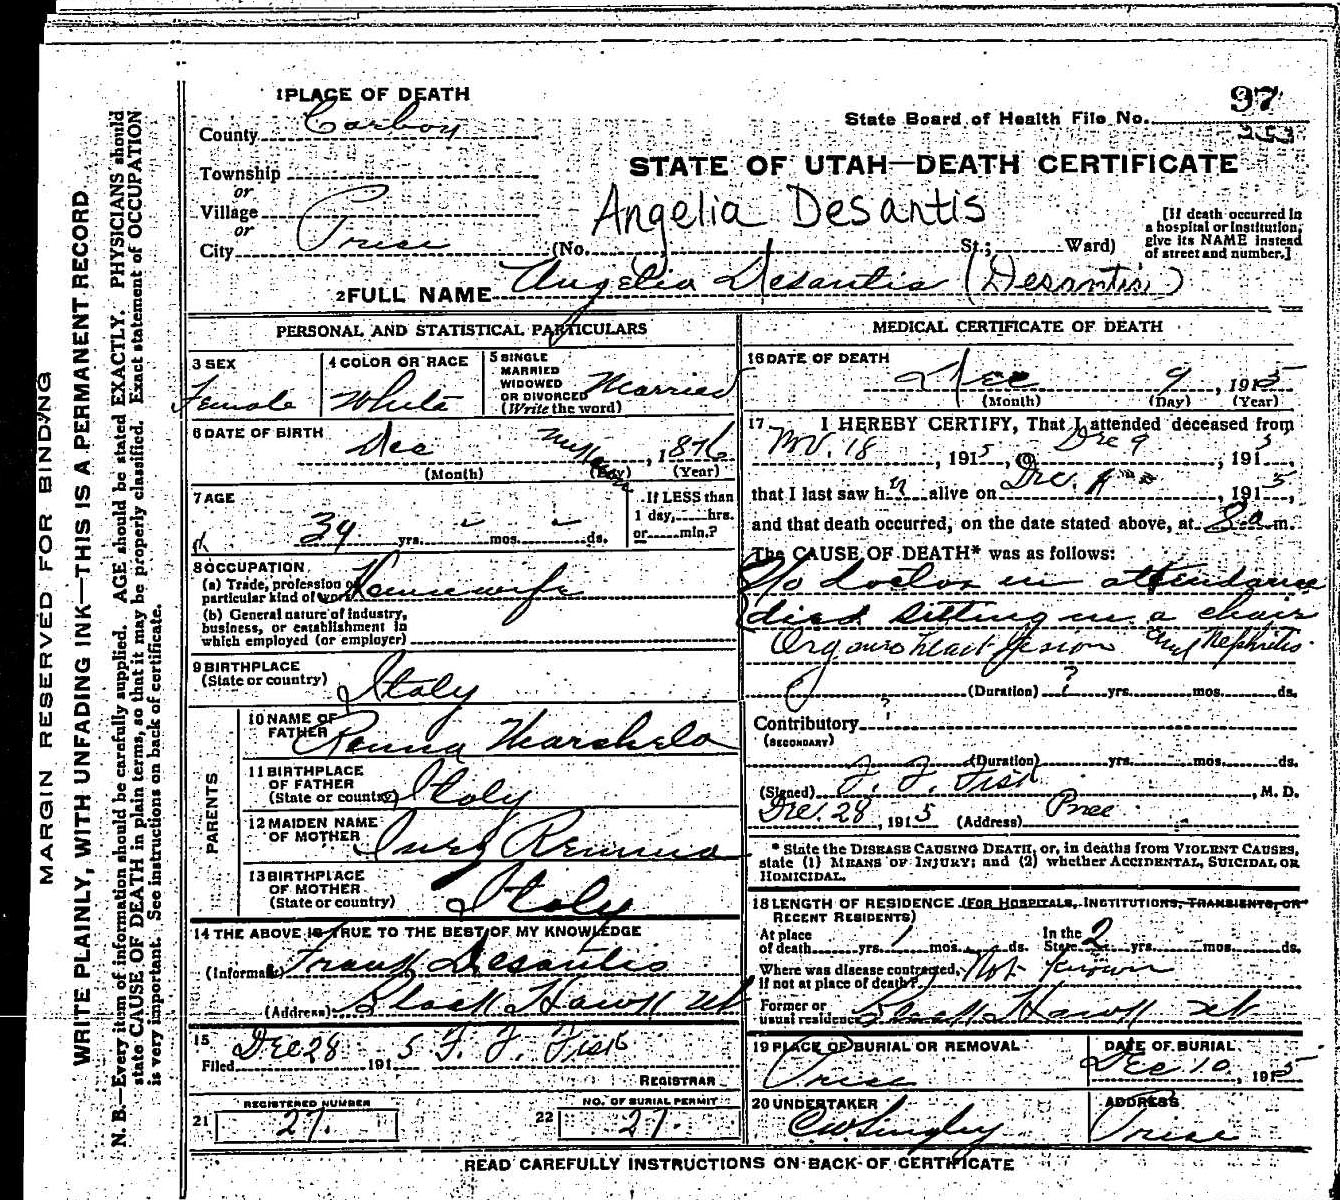 MARGIN RESERVED FOR BINDING
WRITE PLAINLY, WITH UNFADING INK—THIS IS A PERMANENT RECORD
N. B.—Every item of information should be carefully supplied. AGE should be stated EXACTLY. PHYSICIANS should
state CAUSE OF DEATH in plain terms, so that it may be properly classified. Exact statement of OCCUPATION
is very important. See instructions on back of certificate.
1 PLACE OF DEATH
County Carbon
Township
or
Village
or
City Price (No. St.; Ward)
State Board of Health File No. 97
STATE OF UTAH—DEATH CERTIFICATE
Angelia Desantis
[If death occurred in
a hospital or institution,
give its NAME instead
of street and number.]
2 FULL NAME Angelia Desantis (Desantis)
PERSONAL AND STATISTICAL PARTICULARS
3 SEX
Female
4 COLOR OR RACE
White
5 SINGLE
MARRIED
WIDOWED
OR DIVORCED
(Write the word)
Married
6 DATE OF BIRTH
Dec , 1876
(Month) (Day) (Year)
7 AGE
39 yrs. mos. ds.
If LESS than
1 day, hrs.
or min.?
8 OCCUPATION
(a) Trade, profession or
particular kind of work Housewife
(b) General nature of industry,
business, or establishment in
which employed (or employer)
9 BIRTHPLACE
(State or country)
Italy
PARENTS
10 NAME OF
FATHER
11 BIRTHPLACE
OF FATHER
(State or country) Italy
12 MAIDEN NAME
OF MOTHER
13 BIRTHPLACE
OF MOTHER
(State or country) Italy
14 THE ABOVE IS TRUE TO THE BEST OF MY KNOWLEDGE
(Informant) Frank Desantis
(Address) Black Hawk Ut
15
Filed Dec 28 1915 F. F. Fisk
REGISTRAR
21 REGISTERED NUMBER
27.
22 NO. OF BURIAL PERMIT
27.
MEDICAL CERTIFICATE OF DEATH
16 DATE OF DEATH
Dec 9, 1915
(Month) (Day) (Year)
17 I HEREBY CERTIFY, That I attended deceased from
Nov. 18, 1915, to Dec 9, 1915,
that I last saw her alive on Dec. , 1915,
and that death occurred, on the date stated above, at 8 a m.
The CAUSE OF DEATH* was as follows:
No doctor in attendance
died sitting in a chair
heart lesion and Nephritis
(Duration) ? yrs. mos. ds.
Contributory ?
(SECONDARY)
(Duration) yrs. mos. ds.
(Signed) F. F. Fisk, M. D.
Dec. 28, 1915 (Address) Price
* State the DISEASE CAUSING DEATH, or, in deaths from VIOLENT CAUSES,
state (1) MEANS OF INJURY; and (2) whether ACCIDENTAL, SUICIDAL OR
HOMICIDAL.
18 LENGTH OF RESIDENCE (FOR HOSPITALS, INSTITUTIONS, TRANSIENTS, OR
RECENT RESIDENTS)
At place
of death yrs. 1 mos. ds.
In the
State 2 yrs. mos. ds.
Where was disease contracted,
if not at place of death? Not Known
Former or
usual residence Black Hawk Ut
19 PLACE OF BURIAL OR REMOVAL
Price
DATE OF BURIAL
Dec 10, 1915
20 UNDERTAKER
ADDRESS
Price
READ CAREFULLY INSTRUCTIONS ON BACK OF CERTIFICATE